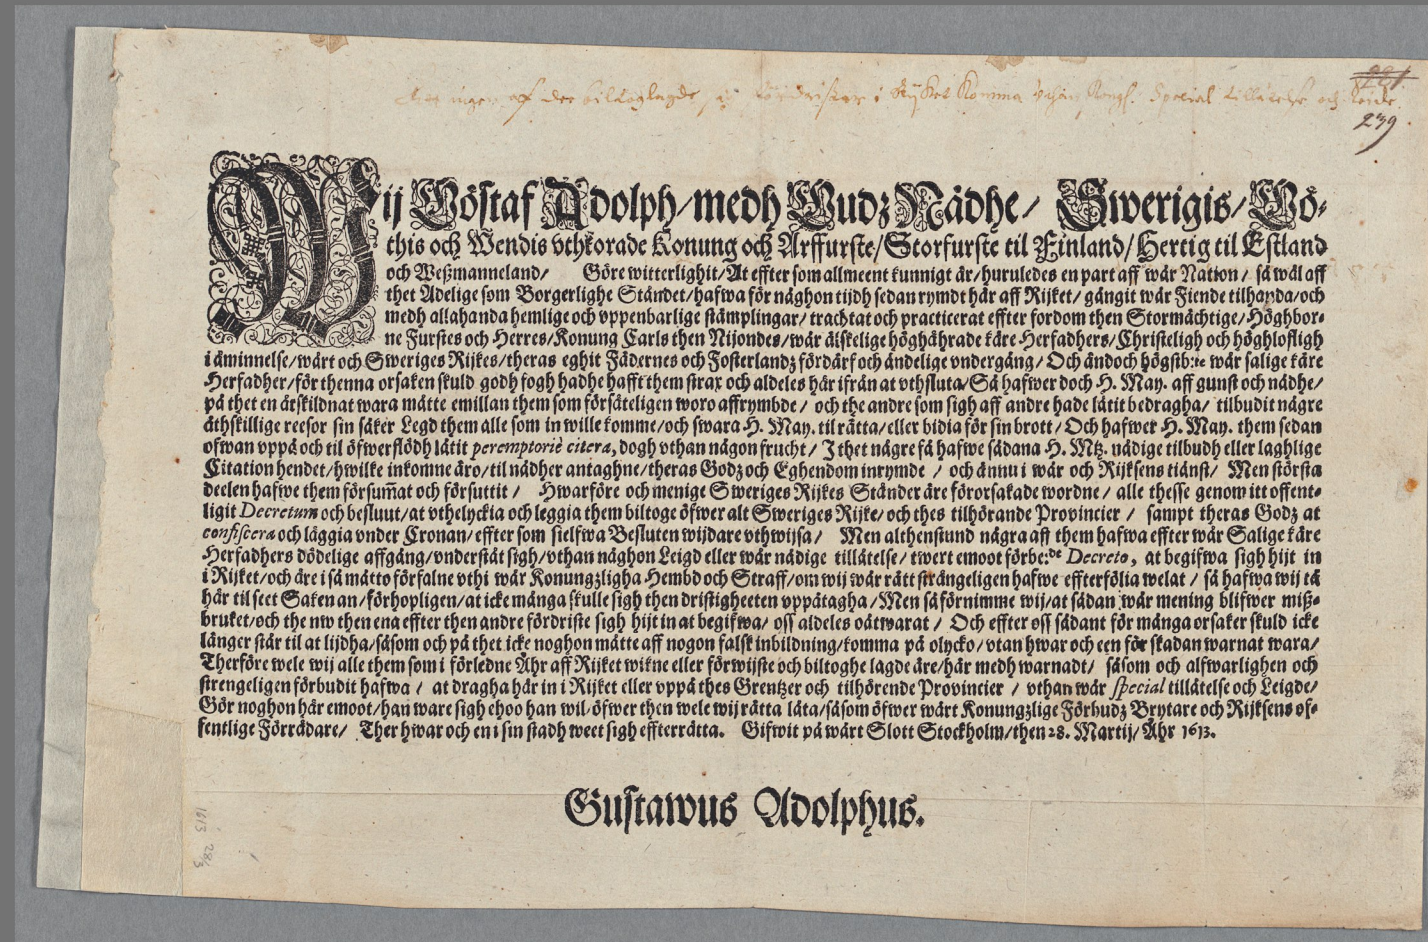 ingen af dee biltoglagde i Rijket Komma Special tillåtelse och Leide
239
WIj Göstaf Adolph/medh Gudz Nådhe/ Swerigis/Gö-
this och Wendis vthkorade Konung och Arffurste/Storfurste til Finland/Hertig til Estland
och Weßmanneland/ Göre witterlighit/At effter som allmeent kunnigt är/huruledes en part aff wår Nation/ så wäl aff
thet Adelige som Borgerlighe Ståndet/hafwa för någhon tijdh sedan rymdt här aff Rijket/ gångit wår Fiende tilhanda/och
medh allahanda hemlige och vppenbarlige stämplingar/ trachtat och practicerat effter fordom then Stormächtige/Höghbor-
ne Furstes och Herres/Konung Carls then Nijondes/wår älskelige höghährade käre Herfadhers/Christeligh och höghlofligh
i åminnelse/wårt och Sweriges Rijkes/theras eghit Fädernes och Fosterlandz fördärf och ändelige vndergång/ Och ändoch högstb:te wår salige käre
Herfadher/för thenna orsaken skuld godh fogh hadhe hafft them strax och aldeles här ifrån at vthsluta/Så hafwer doch H. May. aff gunst och nådhe/
på thet en åtskildnat wara måtte emillan them som försåteligen woro affrymbde/ och the andre som sigh aff andre hade låtit bedragha/ tilbudit någre
åthskillige reesor sin säker Legd them alle som in wille komme/och swara H. May. til rätta/eller bidia för sin brott/ Och hafwer H. May. them sedan
ofwan vppå och til öfwerflödh låtit peremptoriè citera, dogh vthan någon frucht/ I thet någre få hafwe sådana H. Mtz. nådige tilbudh eller laghlige
Citation hendet/hwilke inkomne äro/til nådher antaghne/theras Godz och Eghendom inrymde / och ännu i wår och Rijksens tiänst/ Men största
deelen hafwe them försum̃at och försuttit/ Hwarföre och menige Sweriges Rijkes Ständer äre förorsakade wordne/ alle thesse genom itt offent-
ligit Decretum och besluut/at vthelyckia och leggia them biltoge öfwer alt Sweriges Rijke/och thes tilhörande Provincier/ sampt theras Godz at
confiscera och läggia vnder Cronan/effter som sielfwa Besluten wijdare vthwijsa/ Men althenstund några aff them hafwa effter wår Salige käre
Herfadhers dödelige affgång/vnderstått sigh/vthan någhon Leigd eller wår nådige tillåtelse/twert emoot förbe:de Decreto, at begifwa sigh hijt in
i Rijket/och äre i så måtto förfalne vthi wår Konungzligha Hembd och Straff/om wij wår rätt strängeligen hafwe effterfölia welat/ så hafwa wij tå
här til seet Saken an/förhopligen/at icke många skulle sigh then dristigheeten vppåtagha/Men så förnimme wij/at sådan wår mening blifwer miß-
bruket/och the nw then ena effter then andre fördriste sigh hijt in at begifwa/ oss aldeles oåtwarat/ Och effter oss sådant för många orsaker skuld icke
länger står til at lijdha/såsom och på thet icke noghon måtte aff nogon falsk inbildning/komma på olycko/vtan hwar och een för skadan warnat wara/
Therföre wele wij alle them som i förledne Åhr aff Rijket wikne eller förwijste och biltoghe lagde äre/här medh warnadt/ såsom och alfwarlighen och
strengeligen förbudit hafwa/ at dragha här in i Rijket eller vppå thes Grentzer och tilhörende Provincier/ vthan wår special tillåtelse och Leigde/
Gör noghon här emoot/han ware sigh ehoo han wil/öfwer then wele wij rätta låta/såsom öfwer wårt Konungzlige Förbudz Brytare och Rijksens of-
fentlige Förrädare/ Ther hwar och en i sin stadh weet sigh effterrätta. Gifwit på wårt Slott Stockholm/then 28. Martij/Åhr 1613.
Gustawus Adolphus.
1613 28/3